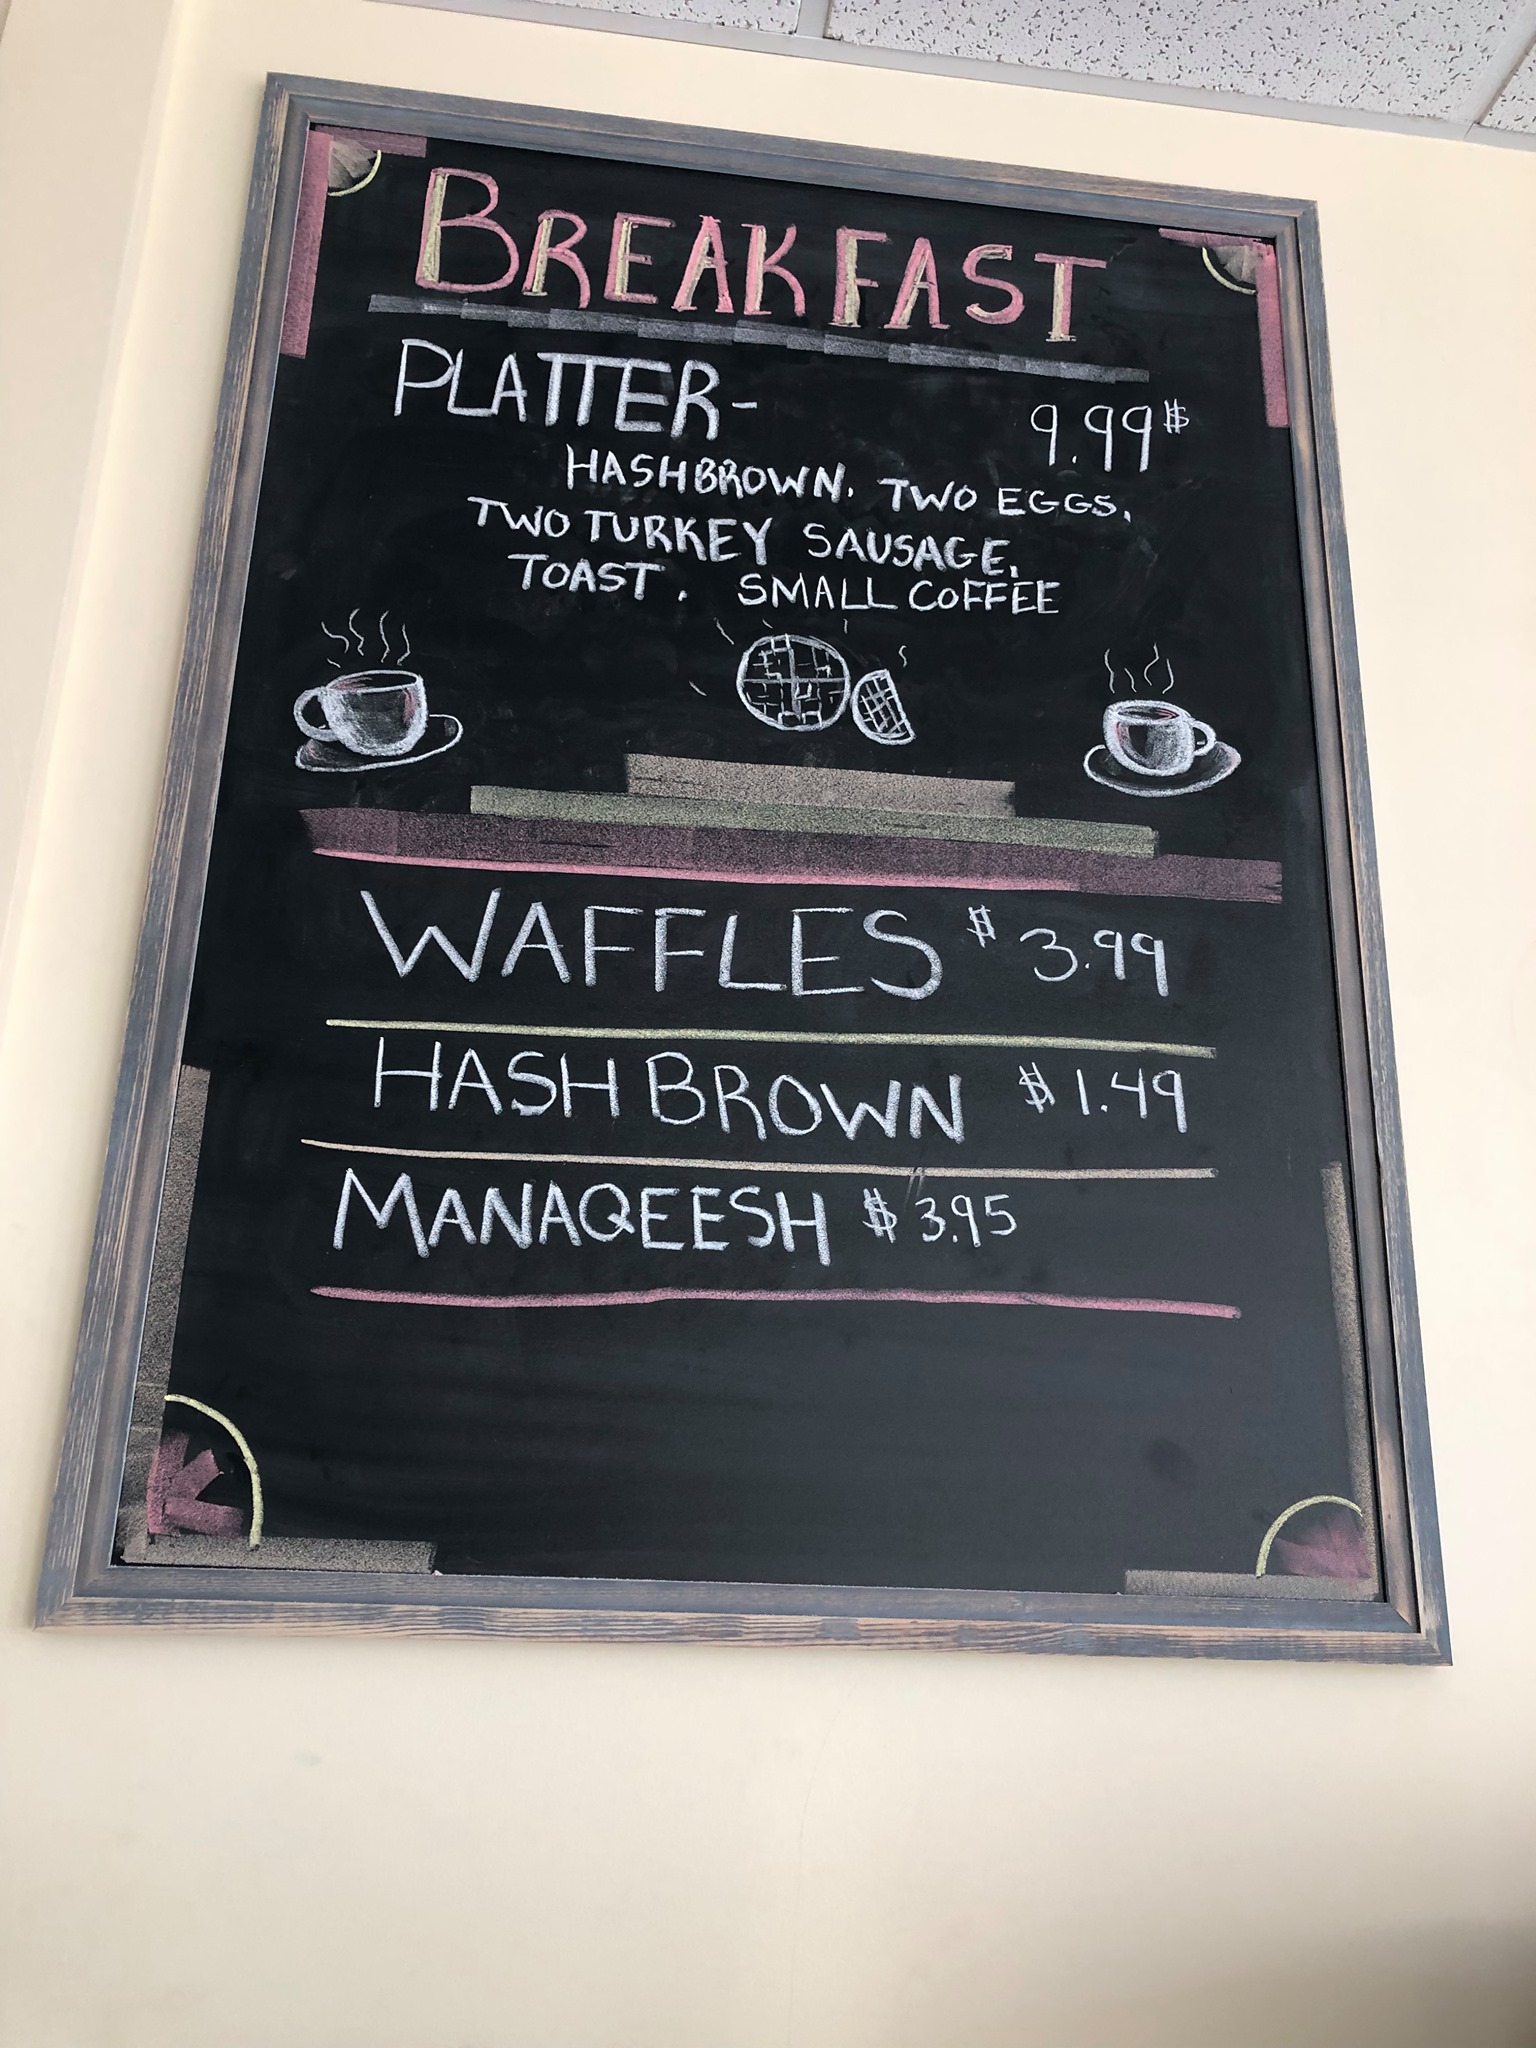 BREAKFAST
PLATTER- 9.99$
HASHBROWN. TWO EGGS.
TWO TURKEY SAUSAGE.
TOAST. SMALL COFFEE
WAFFLES $ 3.99
HASH BROWN $ 1.49
MANAQEESH $ 3.95